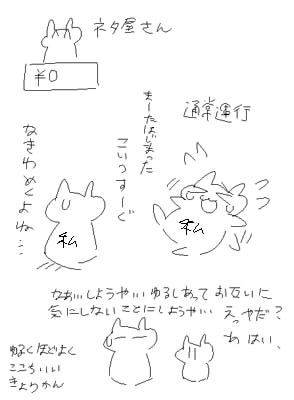 ネタ屋さん
¥0
通常運行
まーたはじまった
こいつすーぐ
なきわめくよね…
私
私
なぁいしようやい ゆるしあって お互いに
気にしないことにしようやい
えっやだ?
あ はい、
ゆるくほどよく
ここちいい
きょりかん